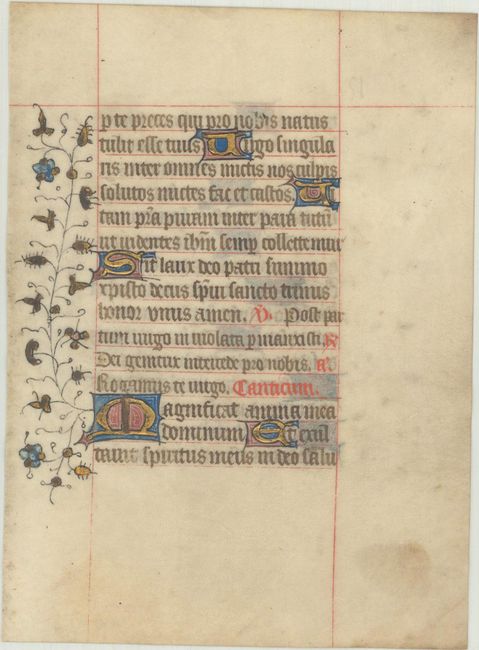 p te preces qui pro nobis natus
tulit esse tuus Virgo singula
ris inter omnes mitis nos culpis
solutos mites fac et castos. Vi
tam pra puram iter para tutu
ut videntes ihm semp collettemur
Sit laux deo patri summo
xpisto decus spui sancto trinus
honor vnus amen. V. Post par
tum virgo in violata p mansisti. R
Dei genitrix intercede pro nobis. a
Rogamus te virgo. Canticum.
Magnificat anima mea
dominum Et exul
tavit spiritus meus in deo salu